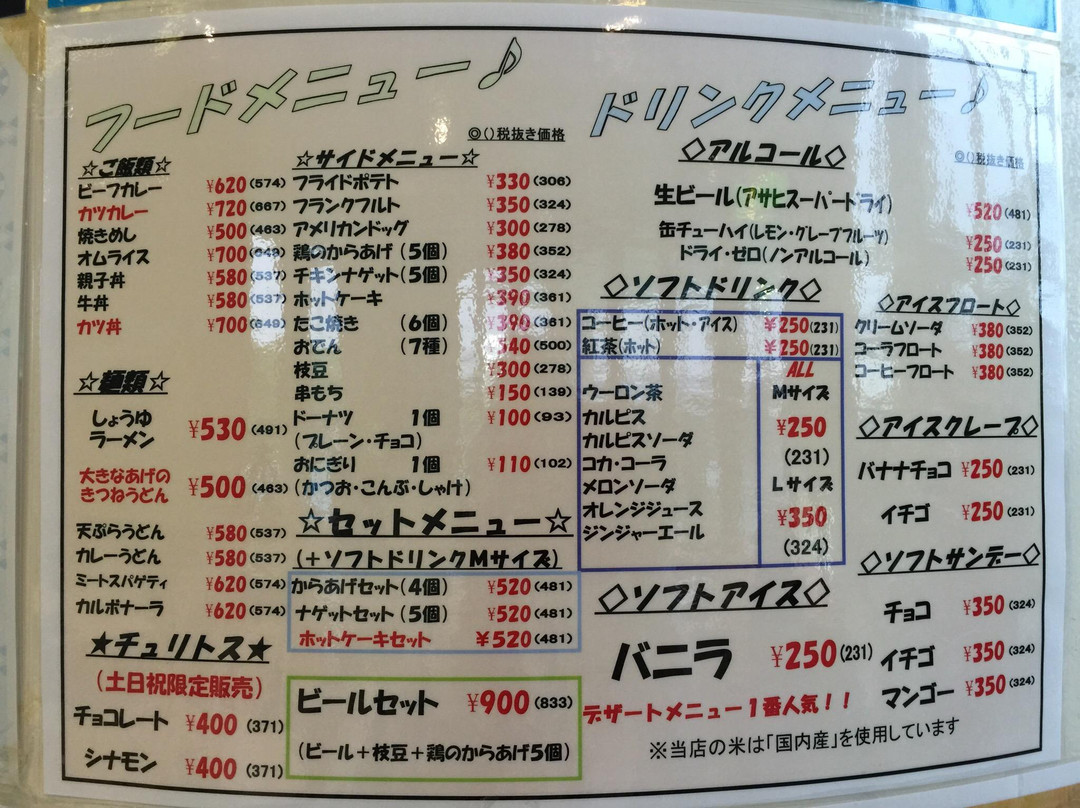 フードメニュー♪
◎()税抜き価格
☆ご飯類☆
ビーフカレー ¥620(574)
カツカレー ¥720(667)
焼きめし ¥500(463)
オムライス ¥700(649)
親子丼 ¥580(537)
牛丼 ¥580(537)
カツ丼 ¥700(649)
☆麺類☆
しょうゆ
ラーメン ¥530(491)
大きなあげの
きつねうどん ¥500(463)
天ぷらうどん ¥580(537)
カレーうどん ¥580(537)
ミートスパゲティ ¥620(574)
カルボナーラ ¥620(574)
★チュリトス★
(土日祝限定販売)
チョコレート ¥400(371)
シナモン ¥400(371)
☆サイドメニュー☆
フライドポテト ¥330(306)
フランクフルト ¥350(324)
アメリカンドッグ ¥300(278)
鶏のからあげ(5個) ¥380(352)
チキンナゲット(5個) ¥350(324)
ホットケーキ ¥390(361)
たこ焼き (6個) ¥390(361)
おでん (7種) ¥540(500)
枝豆 ¥300(278)
串もち ¥150(139)
ドーナツ 1個 ¥100(93)
(プレーン・チョコ)
おにぎり 1個 ¥110(102)
(かつお・こんぶ・しゃけ)
☆セットメニュー☆
(+ソフトドリンクMサイズ)
からあげセット(4個) ¥520(481)
ナゲットセット(5個) ¥520(481)
ホットケーキセット ¥520(481)
ビールセット ¥900(833)
(ビール+枝豆+鶏のからあげ5個)
ドリンクメニュー♪
◎()税抜き価格
◇アルコール◇
生ビール(アサヒスーパードライ) ¥520(481)
缶チューハイ(レモン・グレープフルーツ) ¥250(231)
ドライ・ゼロ(ノンアルコール) ¥250(231)
◇ソフトドリンク◇
コーヒー(ホット・アイス) ¥250(231)
紅茶(ホット) ¥250(231)
ウーロン茶
カルピス
カルピスソーダ
コカ・コーラ
メロンソーダ
オレンジジュース
ジンジャーエール
ALL
Mサイズ
¥250
(231)
Lサイズ
¥350
(324)
◇ソフトアイス◇
バニラ ¥250(231)
デザートメニュー1番人気!!
◇アイスフロート◇
クリームソーダ ¥380(352)
コーラフロート ¥380(352)
コーヒーフロート ¥380(352)
◇アイスクレープ◇
バナナチョコ ¥250(231)
イチゴ ¥250(231)
◇ソフトサンデー◇
チョコ ¥350(324)
イチゴ ¥350(324)
マンゴー ¥350(324)
※当店の米は「国内産」を使用しています